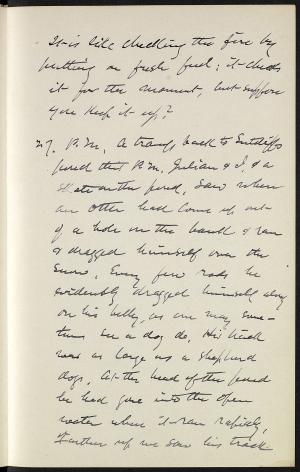 It is like checking the fire by
putting on fresh fuel; it checks
it for the moment, but suppose
you keep it up?
27. P.M. A tramp back to Sutcliffs
pond this P.M. Julian & I, & a
skate on the pond, saw where
an otter had come up out
of a hole in the bank & ran
& dragged himself over the
snow. Every few rods he
evidently dragged himself along
on his belly, as one may some-
times see a dog do. His track
was as large as a shepherd
dogs. At the head of the pond
he had gone into the open
water where it ran rapidly,
Further up we saw his track